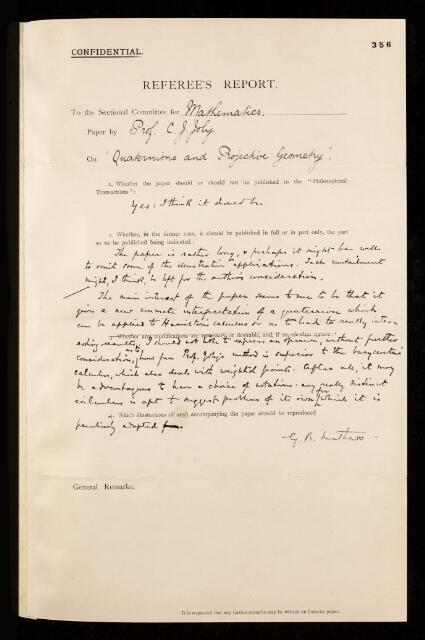 CONFIDENTIAL.
356
REFEREE'S REPORT.
To the Sectional Committee for Mathematics.
Paper by Prof. C. J. Joly
On 'Quaternions and Projective Geometry'.
1. Whether the paper should or should not be published in the "Philosophical
Transactions":
Yes: I think it should be.
2. Whether, in the former case, it should be published in full or in part only, the part
so to be published being indicated:
The paper is rather long, & perhaps it might be well
to omit some of the illustrative applications. Such curtailment
might, I think, be left for the author's consideration.
The main interest of the paper seems to me to be that it
gives a new concrete interpretation of a quaternion which
can be applied to Hamilton's calculus so as to lead to really inter-
3. Whether any modifications are necessary or desirable, and, if so, of what nature:
esting results. I should not like to express an opinion, without further
consideration, as to how far Prof. Joly's method is superior to the barycentric
calculus, which also deals with weighted points. After all, it may
be advantageous to have a choice of notations: any really distinct
calculus is apt to suggest problems of its own for which it is
4. Which illustrations (if any) accompanying the paper should be reproduced
peculiarly adapted
G. B. Mathews
General Remarks.
It is requested that any further remarks may be written on foolscap paper.